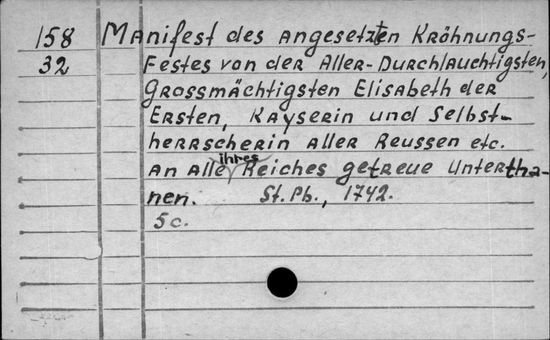 158 Manifest des angesetzten Kröhnungs-
32 Festes von der Aller-Durchlauchtigsten,
Grossmächtigsten Elisabeth der
Ersten, Kayserin und Selbst-
herrscherin aller Reussen etc.
an alle ihres Reiches getreue Untertha-
nen. St. Pb., 1742.
5 c.